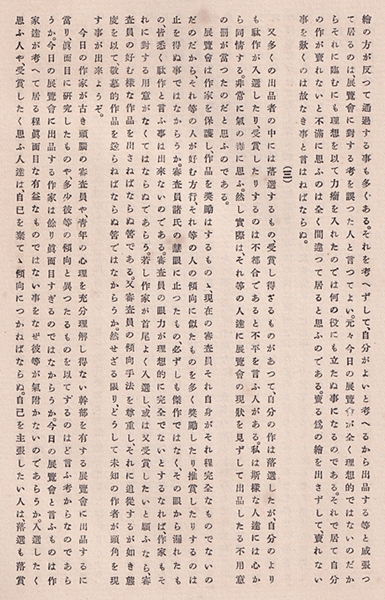 繪の方が反つて通過する事も多くある。それを考へずして、自分がよいと考へるから出品する等と威張つ
て居るのは展覽會に對する考を誤つた人と言つてよい。元々今日の展覽會が全く理想的ではないのだか
らそれに臨むにも理想を以て力瘤を入れたのでは何の役にも立たぬ事になるのである。それで居て自分
の作が賣れないと不滿に思ふのは全く間違つて居ると思ふのである。賣る爲の繪を出さずして賣れない
事を歎くのは故なき事と言はねばならぬ。
(三)
又多くの出品者の中には落選するもの受賞し得ざるものがあつて、自分の作は落選したが、自分のより
も駄作が入選したり受賞したりするのは不都合であると不平を言ふ人がある。私は斯樣な人達には心か
ら同情する。非常に氣の毒に思ふ。然し實際は、それ等の人達に展覽會の現狀を見ずして出品したる不用意
の罰が當つたのだと思ふのである。
展覽會は作家を保護し、作品を奬勵はするものゝ、現在の審査員それ自身がそれ程完全なものでないの
だのだから、それ等の人が好む方言、それ等の人の傾向に似たものを多く奬勵したり推賞したりするのは
止を得ぬ事ではなからうか。審査員諸氏の慧眼に止つたもの必ずしも傑作ではなく、その眼から漏れたも
の、皆悉く駄作と言ふ事は出來ないのである。審査員の眼力が理想的に完全でないとするなれば作家もそ
れに對する用意がなくてはならぬであらう。若し作家が首尾よく入選し、或は又受賞したいと願ふなら、審
査員の好む樣な作品を出さねばならぬ筈ではなからうか。又審査員の傾向手法を尊重し、それに追從するが如き態
度を以て敬慕的作品を造らねばならぬ筈であらうか。然せざる限り、どうして未知の作者が頭角を現
す事が出來ようぞ。
今日の作家が古き頭腦の審査員や靑年の心理を充分理解し得ない幹部を有する展覽會に出品するに
當り眞面目に硏究したものや多少彼等の傾向と異つたるものを以てするのはど言ふものからなのであら
うか。今日の展覽會に出品する作家は餘り眞面目すぎるのではなからうか。今日の展覽會と言ふものは作
家達が考へて居る程眞面目な有益なものではない事をなぜ彼等が氣附かないのであらうか。入選したく
思ふ人や、受賞したく思ふ人達は、自己を棄てゝ傾向につかねばならぬ。自己を主張したい人は落選も落賞